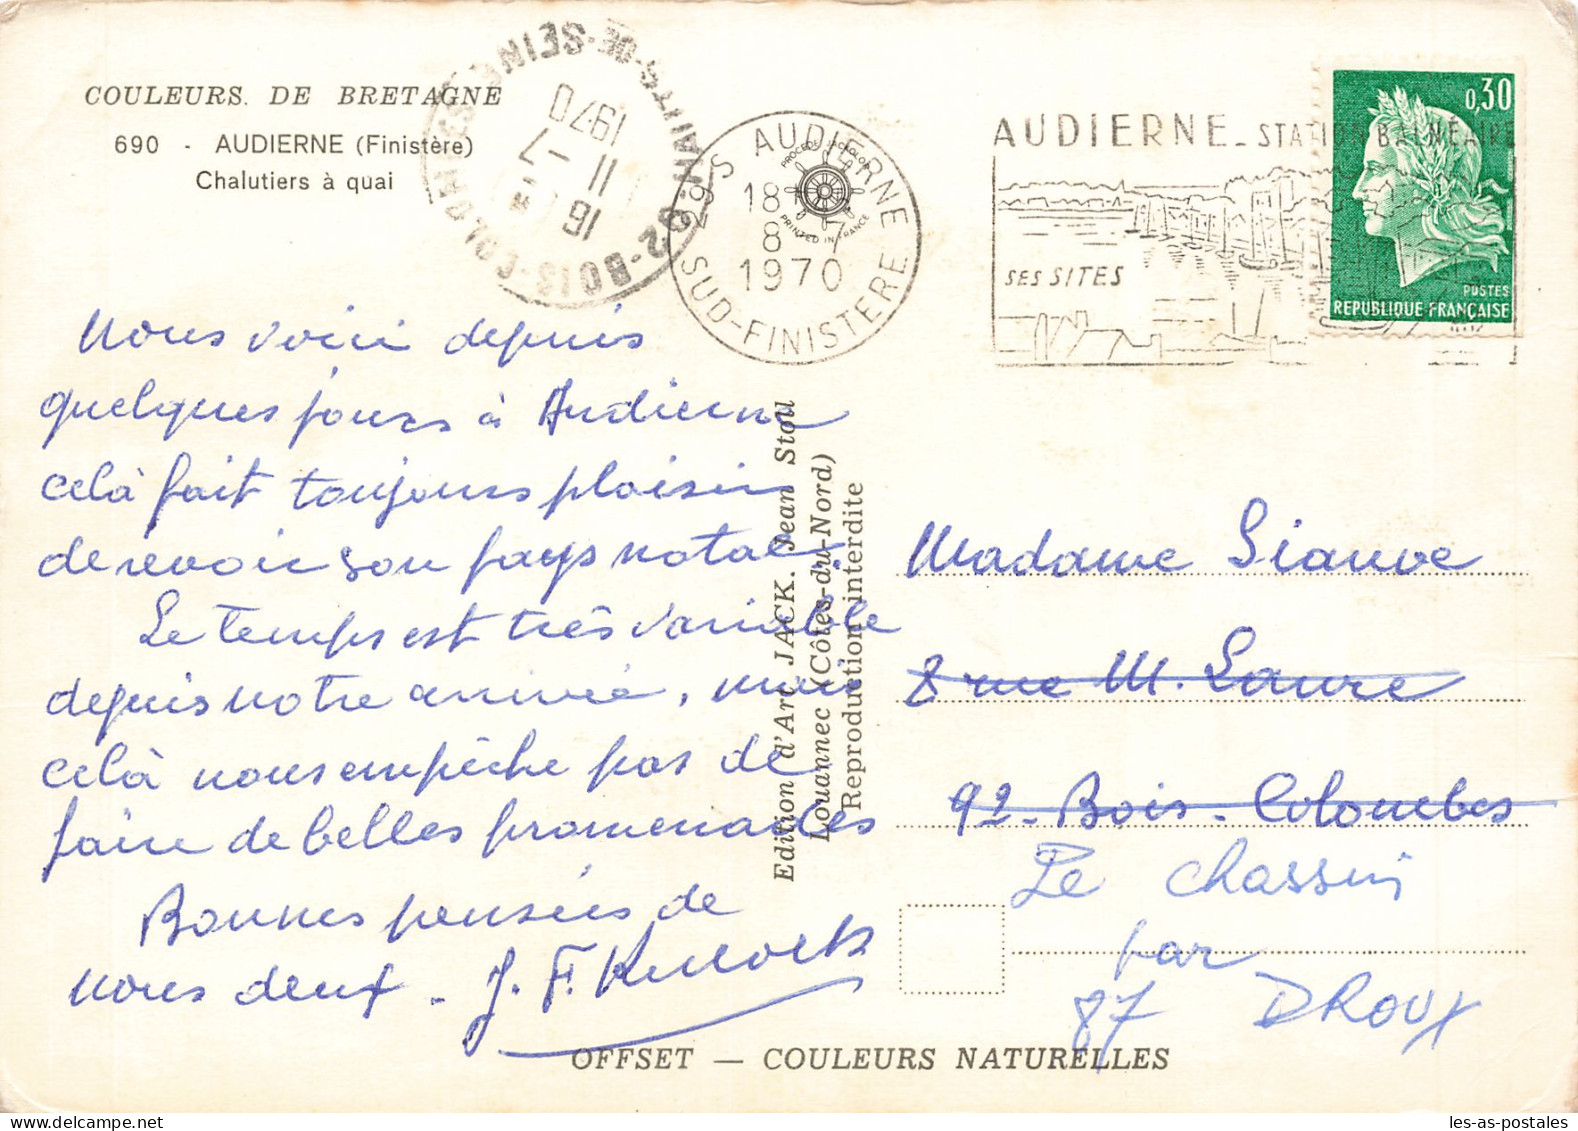 COULEURS DE BRETAGNE
690 - AUDIERNE (Finistère)
Chalutiers à quai
92-BOIS-COLOMBES
HAUTS-DE-SEINE
16 H
11-7
1970
29 S AUDIERNE
18 H
8-7
1970
SUD-FINISTERE
PROCEDE JACKOLOR
PRINTED IN FRANCE
AUDIERNE - STATION BALNÉAIRE
SES SITES
0,30
POSTES
REPUBLIQUE FRANÇAISE
Nous voici depuis
quelques jours à Audierne
celà fait toujours plaisir
de revoir son pays natal.
Le temps est très variable
depuis notre arrivée, mais
celà nous empêche pas de
faire de belles promenades
Bonnes pensées de
nous deux - J. F.
Edition d'Art JACK. Jean Stoll
Louannec (Côtes-du-Nord)
Reproduction interdite
Madame Siauve
8 rue M. Laure
92 - Bois - Colombes
Le Chassin
par
87 DROUX
OFFSET — COULEURS NATURELLES
les-as-postales